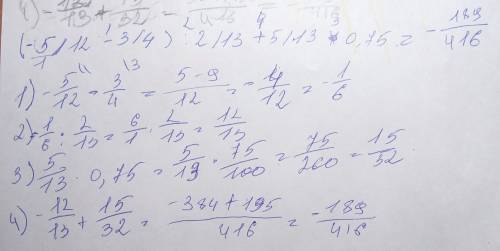 4) - 12/13 + 15/32 = 416
(-5/12 - 3/4) : 2/13 + 5/13 * 0,75 = - 189/416
1) - 5/12 = 3/4 = 5-9/12 = - 4/12 = - 1/6
2) - 1/6 : 2/13 = 6/1 · 2/13 = 12/13
3) 5/13 · 0,75 = 5/13 · 75/100 = 75/260 = 15/32.
4) - 12/13 + 15/32 = -384+195/416 = -189/416